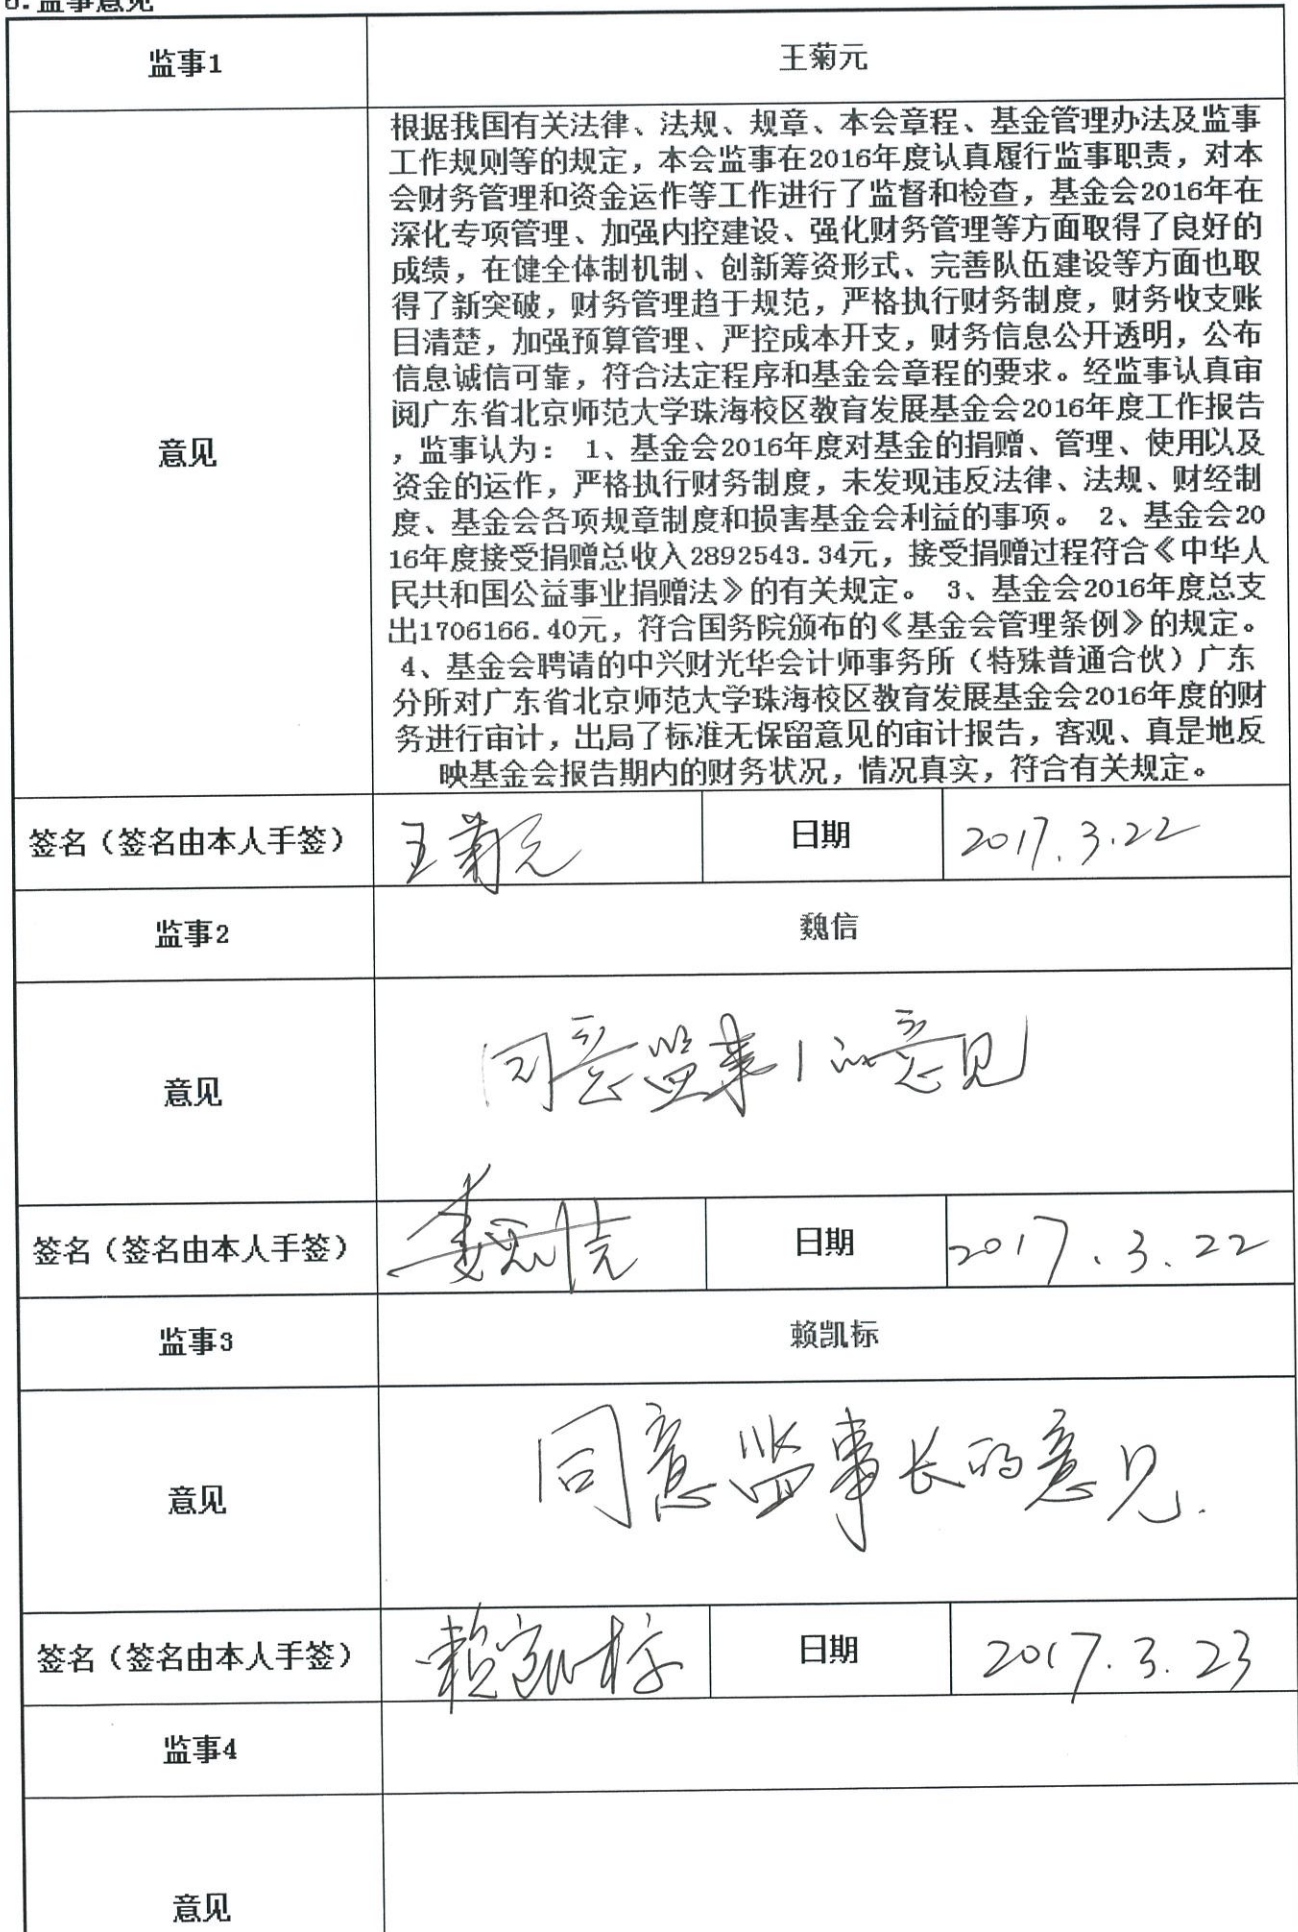 监事意见
监事1 王菊元
意见
根据我国有关法律、法规、规章、本会章程、基金管理办法及监事
工作规则等的规定，本会监事在2016年度认真履行监事职责，对本
会财务管理和资金运作等工作进行了监督和检查，基金会2016年在
深化专项管理、加强内控建设、强化财务管理等方面取得了良好的
成绩，在健全体制机制、创新筹资形式、完善队伍建设等方面也取
得了新突破，财务管理趋于规范，严格执行财务制度，财务收支账
目清楚，加强预算管理、严控成本开支，财务信息公开透明，公布
信息诚信可靠，符合法定程序和基金会章程的要求。经监事认真审
阅广东省北京师范大学珠海校区教育发展基金会2016年度工作报告
，监事认为： 1、基金会2016年度对基金的捐赠、管理、使用以及
资金的运作，严格执行财务制度，未发现违反法律、法规、财经制
度、基金会各项规章制度和损害基金会利益的事项。 2、基金会20
16年度接受捐赠总收入2892543.34元，接受捐赠过程符合《中华人
民共和国公益事业捐赠法》的有关规定。 3、基金会2016年度总支
出1706166.40元，符合国务院颁布的《基金会管理条例》的规定。
4、基金会聘请的中兴财光华会计师事务所（特殊普通合伙）广东
分所对广东省北京师范大学珠海校区教育发展基金会2016年度的财
务进行审计，出局了标准无保留意见的审计报告，客观、真是地反
映基金会报告期内的财务状况，情况真实，符合有关规定。
签名（签名由本人手签） 王菊元 日期 2017.3.22
监事2 魏信
意见 同意监事1的意见
签名（签名由本人手签） 魏信 日期 2017.3.22
监事3 赖凯标
意见 同意监事长的意见.
签名（签名由本人手签） 赖凯标 日期 2017.3.23
监事4
意见